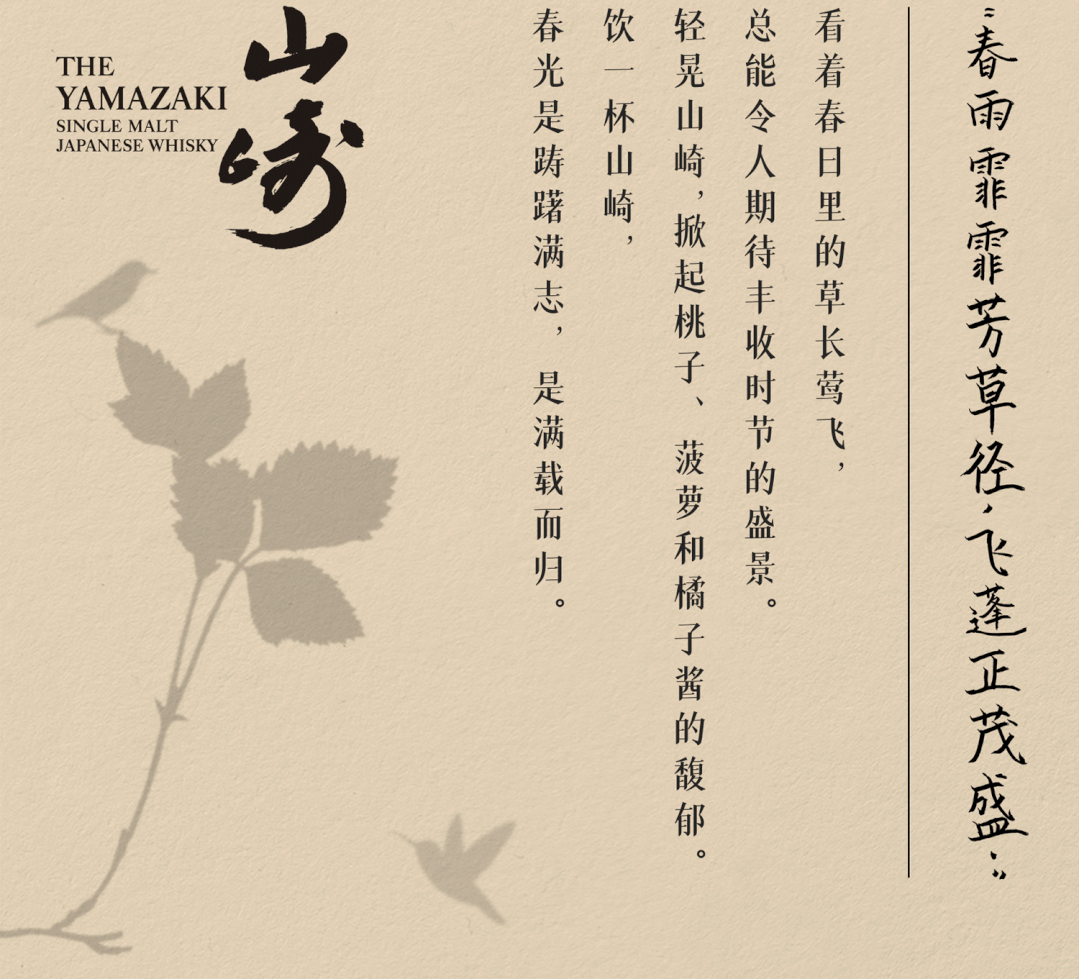 “春雨霏霏芳草径，飞蓬正茂盛。”
看着春日里的草长莺飞，
总能令人期待丰收时节的盛景。
轻晃山崎，掀起桃子、菠萝和橘子酱的馥郁。
饮一杯山崎，
春光是踌躇满志，是满载而归。
THE
YAMAZAKI
SINGLE MALT
JAPANESE WHISKY
山崎